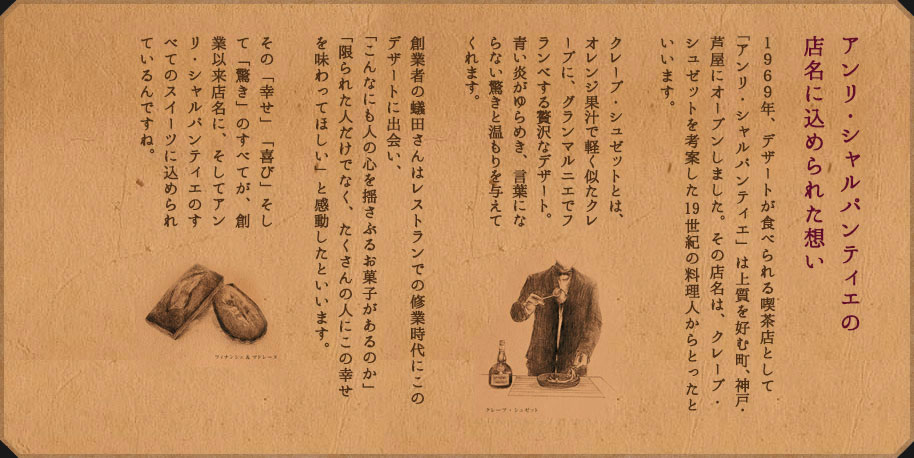 アンリ・シャルパンティエの
店名に込められた想い
1969年、デザートが食べられる喫茶店として
「アンリ・シャルパンティエ」は上質を好む町、神戸・
芦屋にオープンしました。その店名は、クレープ・
シュゼットを考案した19世紀の料理人からとったと
いいます。
クレープ・シュゼットとは、
オレンジ果汁で軽く似たクレ
ープに、グランマルニエでフ
ランベする贅沢なデザート。
青い炎がゆらめき、言葉にな
らない驚きと温もりを与えて
くれます。
クレープ・シュゼット
創業者の蟻田さんはレストランでの修業時代にこの
デザートに出会い、
「こんなにも人の心を揺さぶるお菓子があるのか」
「限られた人だけでなく、たくさんの人にこの幸せ
を味わってほしい」と感動したといいます。
その「幸せ」「喜び」そし
て「驚き」のすべてが、創
業以来店名に、そしてアン
リ・シャルパンティエのす
べてのスイーツに込められ
ているんですね。
フィナンシェ&マドレーヌ